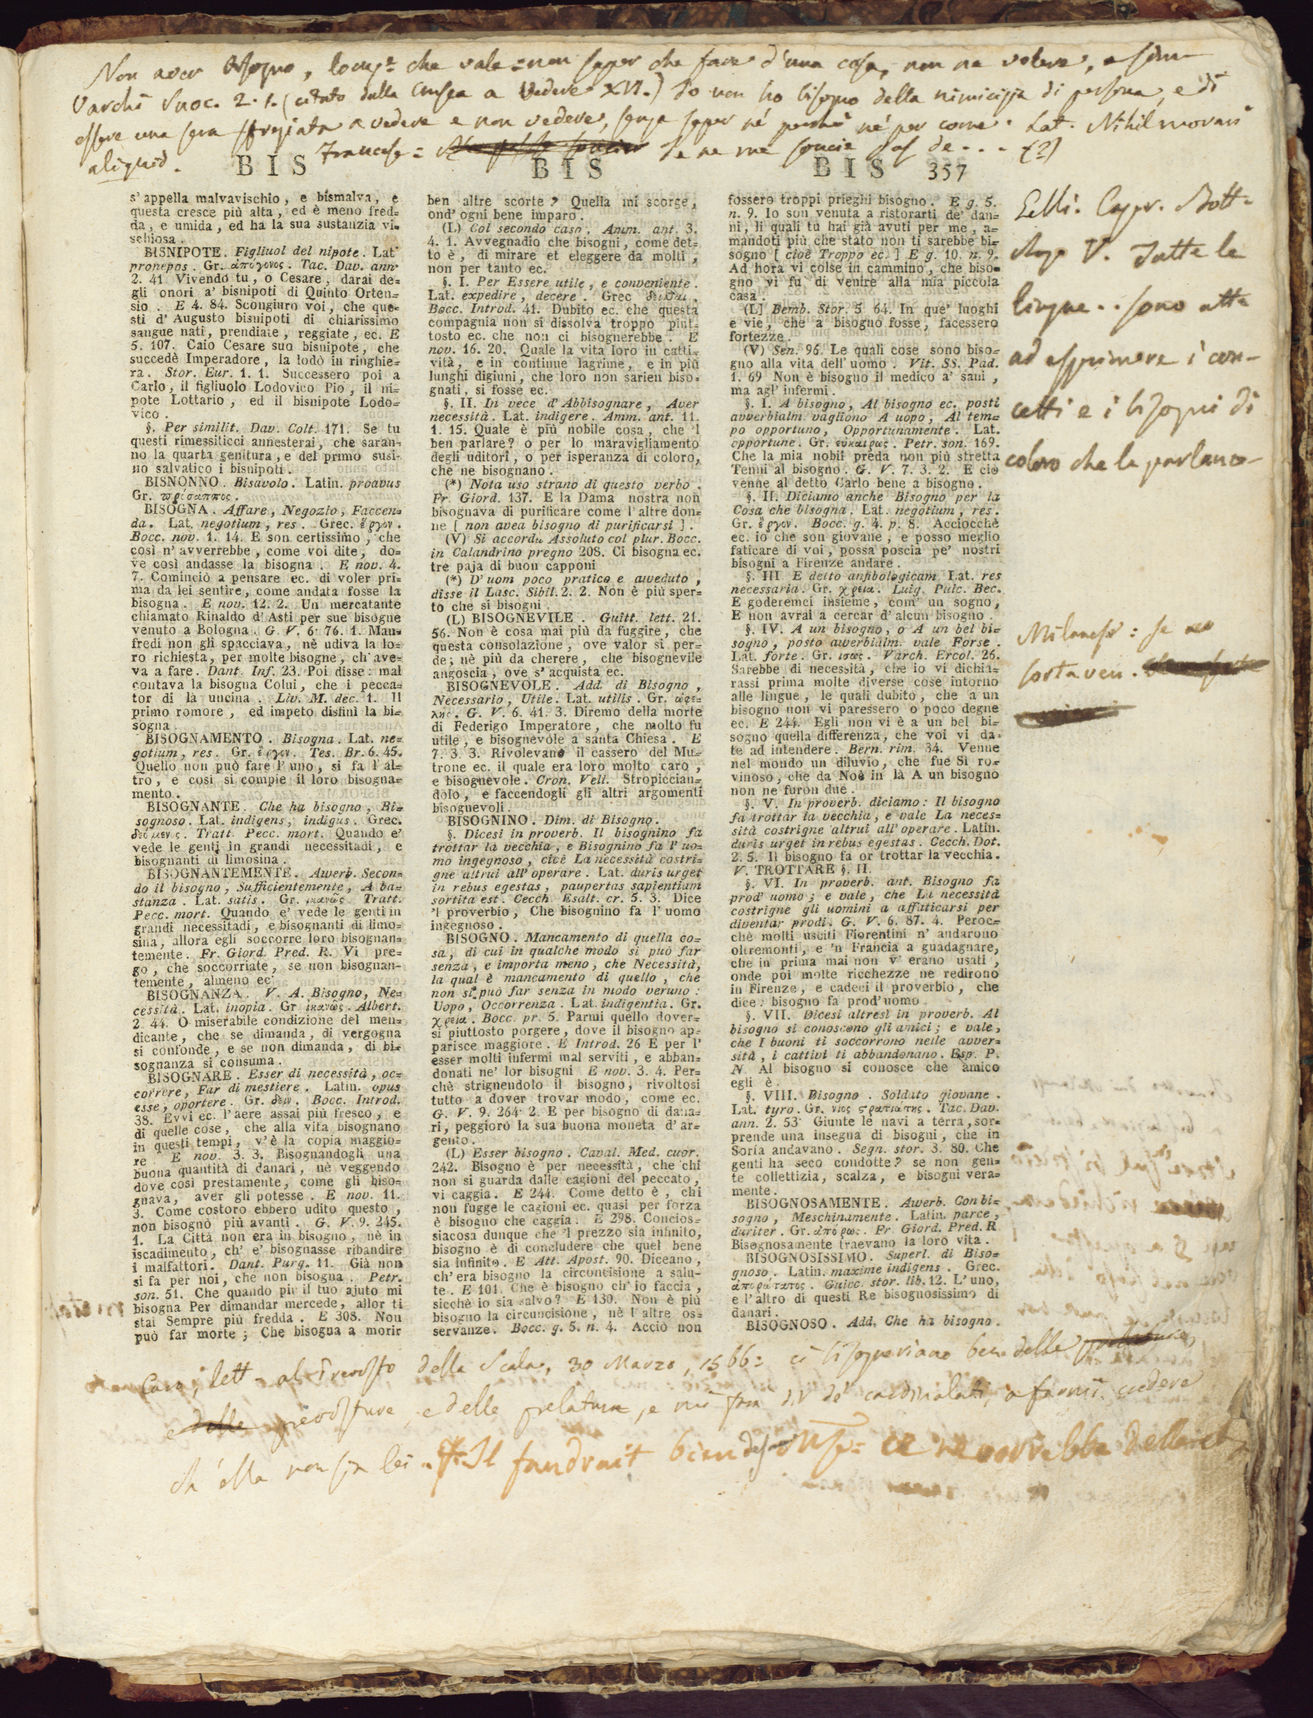 Non aver bisogno, locuz.e che vale = non saper che fare d'una cosa, non ne volere, e sim-
Varchi Suoc. 2. 1. (citato dalla Crusca a Vedere XVI.) Io non ho bisogno della nimicizia di persona, e di
essere una sera sfregiata a vedere e non vedere, senza saper nè perchè nè per come. Lat. Nihil moror
aliquid. Francese = Je ne me soucie pas de . . . (?)
BIS BIS BIS 357
s'appella malvavischio, e bismalva, e
questa cresce più alta, ed è meno fred=
da, e umida, ed ha la sua sustanzia vi=
schiosa.
BISNIPOTE. Figliuol del nipote. Lat
pronepos. Gr. ἀπόγονος. Tac. Dav. ann.
2. 41. Vivendo tu, o Cesare, darai de=
gli onori a' bisnipoti di Quinto Orten=
sio. E 4. 84. Scongiuro voi, che que=
sti d'Augusto bisnipoti di chiarissimo
sangue nati, prendiate, reggiate, ec. E
5. 107. Caio Cesare suo bisnipote, che
succedè Imperadore, la lodò in ringhie=
ra. Stor. Eur. 1. 1. Successero poi a
Carlo, il figliuolo Lodovico Pio, il ni=
pote Lottario, ed il bisnipote Lodo=
vico.
§. Per similit. Dav. Colt. 171. Se tu
questi rimessiticci annesterai, che saran=
no la quarta genitura, e del primo susi=
no salvatico i bisnipoti.
BISNONNO. Bisavolo. Latin. proavus
Gr.
BISOGNA. Affare, Negozio, Faccen=
da. Lat. negotium, res. Grec. ἔργον.
Bocc. nov. 1. 14. E son certissimo, che
così n'avverrebbe, come voi dite, do=
ve così andasse la bisogna. E nov. 4.
7. Cominciò a pensare ec. di voler pri=
ma da lei sentire, come andata fosse la
bisogna. E nov. 12. 2. Un mercatante
chiamato Rinaldo d'Asti per sue bisogne
venuto a Bologna. G. V. 6. 76. 1. Man=
fredi non gli spacciava, nè udiva la lo=
ro richiesta, per molte bisogne, ch'ave=
va a fare. Dant. Inf. 23. Poi disse: mal
contava la bisogna Colui, che i pecca=
tor di là uncina. Liv. M. dec. 1. Il
primo romore, ed impeto disfinì la bi=
sogna.
BISOGNAMENTO. Bisogna. Lat. ne=
gotium, res. Gr. ἔργον. Tes. Br. 6. 45.
Quello non può fare l'uno, si fa l'al=
tro, e così si compie il loro bisogna=
mento.
BISOGNANTE. Che ha bisogno, Bi=
sognoso. Lat. indigens, indigus. Grec.
Tratt. Pecc. mort. Quando e'
vede le genti in grandi necessitadi, e
bisognanti di limosina.
BISOGNANTEMENTE. Avverb. Secon=
do il bisogno, Sufficientemente, A ba=
stanza. Lat. satis. Gr. ἱκανῶς. Tratt.
Pecc. mort. Quando e' vede le genti in
grandi necessitadi, e bisognanti di limo=
sina, allora egli soccorre loro bisognan=
temente. Fr. Giord. Pred. R. Vi pre=
go, che soccorriate, se non bisognan=
temente, almeno ec.
BISOGNANZA. V. A. Bisogno, Ne=
cessità. Lat. inopia. Gr. ἱκανῶς. Albert.
2. 44. O miserabile condizione del men=
dicante, che se dimanda, di vergogna
si confonde, e se non dimanda, di bi=
sognanza si consuma.
BISOGNARE. Esser di necessità, oc=
correre, Far di mestiere. Latin. opus
esse, oportere. Gr. δεῖν. Bocc. Introd.
38. Evvi ec. l'aere assai più fresco, e
di quelle cose, che alla vita bisognano
in questi tempi, v'è la copia maggio=
re E nov. 3. 3. Bisognandogli una
buona quantità di danari, nè veggendo
dove così prestamente, come gli biso=
gnava, aver gli potesse. E nov. 11.
3. Come costoro ebbero udito questo,
non bisognò più avanti. G. V. 9. 245.
1. La Città non era in bisogno, nè in
iscadimento, ch'e' bisognasse ribandire
i malfattori. Dant. Purg. 11. Già non
si fa per noi, che non bisogna. Petr.
son. 51. Che quando più il tuo ajuto mi
bisogna Per dimandar mercede, allor ti
stai Sempre più fredda. E 308. Non
può far morte; Che bisogna a morir
ben altre scorte? Quella mi scorge,
ond'ogni bene imparo.
(L) Col secondo caso. Amm. ant. 3.
4. 1. Avvegnadio che bisogni, come det=
to è, di mirare et eleggere da molti,
non per tanto ec.
§. I. Per Essere utile, e conveniente.
Lat. expedire, decere. Grec δεῖσθαι.
Bocc. Introd. 41. Dubito ec. che questa
compagnia non si dissolva troppo piut=
tosto ec. che non ci bisognerebbe. E
nov. 16. 20. Quale la vita loro in catti=
vità, e in continue lagrime, e in più
lunghi digiuni, che loro non sarien biso=
gnati, si fosse ec.
§. II. In vece d'Abbisognare, Aver
necessità. Lat. indigere. Amm. ant. 11.
1. 15. Quale è più nobile cosa, che 'l
ben parlare? o per lo maravigliamento
degli uditori, o per isperanza di coloro,
che ne bisognano.
(*) Nota uso strano di questo verbo.
Fr. Giord. 137. E la Dama nostra non
bisognava di purificare come l'altre don=
ne [ non avea bisogno di purificarsi ].
(V) Si accorda Assoluto col plur. Bocc.
in Calandrino pregno 208. Ci bisogna ec.
tre paja di buon capponi
(*) D'uom poco pratico e avveduto,
disse il Lasc. Sibil. 2. 2. Non è più sper=
to che si bisogni
(L) BISOGNEVILE. Guitt. lett. 21.
56. Non è cosa mai più da fuggire, che
questa consolazione, ove valor si per=
de; nè più da cherere, che bisognevile
angoscia, ove s'acquista ec.
BISOGNEVOLE. Add. di Bisogno,
Necessario, Utile. Lat. utilis. Gr. ὠφέ=
λης. G. V. 6. 41. 3. Diremo della morte
di Federigo Imperatore, che molto fu
utile, e bisognevole a santa Chiesa. E
7. 3. 3. Rivolevano il cassero del Mu=
trone ec. il quale era loro molto caro,
e bisognevole. Cron. Vell. Stropiccian=
dolo, e faccendogli gli altri argomenti
bisognevoli.
BISOGNINO. Dim. di Bisogno.
§. Dicesi in proverb. Il bisognino fa
trottar la vecchia, e Bisognino fa l'uo=
mo ingegnoso, cioè La necessità costri=
gne altrui all'operare. Lat. duris urget
in rebus egestas, paupertas sapientiam
sortita est. Cecch. Esalt. cr. 5. 3. Dice
'l proverbio, Che bisognino fa l'uomo
ingegnoso.
BISOGNO. Mancamento di quella co=
sa, di cui in qualche modo si può far
senza, e importa meno, che Necessità,
la qual è mancamento di quello, che
non si può far senza in modo veruno:
Uopo, Occorrenza. Lat. indigentia. Gr.
χρεία. Bocc. pr. 5. Parmi quello dover=
si piuttosto porgere, dove il bisogno ap=
parisce maggiore. E Introd. 26 E per l'
esser molti infermi mal serviti, e abban=
donati ne' lor bisogni E nov. 3. 4. Per=
chè strignendolo il bisogno, rivoltosi
tutto a dover trovar modo, come ec.
G. V. 9. 264. 2. E per bisogno di dana=
ri, peggiorò la sua buona moneta d'ar=
gento.
(L) Esser bisogno. Caval. Med. cuor.
242. Bisogno è per necessità, che chi
non si guarda dalle cagioni del peccato,
vi caggia. E 244. Come detto è, chi
non fugge le cagioni ec. quasi per forza
è bisogno che caggia. E 298. Concios=
siacosa dunque che 'l prezzo sia infinito,
bisogno è di concludere che quel bene
sia infinito. E Att. Apost. 90. Diceano,
ch'era bisogno la circoncisione a salu=
te. E 101. Che è bisogno ch'io faccia,
sicchè io sia salvo? E 130. Non è più
bisogno la circuncisione, nè l'altre os=
servanze. Bocc. g. 5. n. 4. Acciò non
fossero troppi prieghi bisogno. E g. 5.
n. 9. Io son venuta a ristorarti de' dan=
ni, li quali tu hai già avuti per me, a=
mandoti più che stato non ti sarebbe bi=
sogno [ cioè Troppo ec. ] E g. 10. n. 9.
Ad hora vi colse in cammino, che biso=
gno vi fu di venire alla mia piccola
casa.
(L) Bemb. Stor. 5. 64. In que' luoghi
e vie, che a bisogno fosse, facessero
fortezze.
(V) Sen. 96. Le quali cose sono biso=
gno alla vita dell'uomo. Vit. SS. Pad.
1. 69 Non è bisogno il medico a' sani,
ma agl'infermi.
§. I. A bisogno, Al bisogno ec. posti
avverbialm. vagliono A uopo, Al tem=
po opportuno, Opportunamente. Lat.
opportune. Gr. εὐκαίρως. Petr. son. 169.
Che la mia nobil preda non più stretta
Tenni al bisogno. G. V. 7. 3. 2. E ciò
venne al detto Carlo bene a bisogno.
§. II. Diciamo anche Bisogno per la
Cosa che bisogna. Lat. negotium, res.
Gr. ἔργον. Bocc. g. 4. p. 8. Acciocchè
ec. io che son giovane, e posso meglio
faticare di voi, possa poscia pe' nostri
bisogni a Firenze andare.
§. III E detto anfibologicam. Lat. res
necessaria. Gr. χρεία. Luig. Pulc. Bec.
E goderemci insieme, com'un sogno,
E non avrai a cercar d'alcun bisogno.
§. IV. A un bisogno, o A un bel bi=
sogno, posto avverbialm. vale Forse.
Lat. forte. Gr. ἴσως. Varch. Ercol. 26.
Sarebbe di necessità, che io vi dichia=
rassi prima molte diverse cose intorno
alle lingue, le quali dubito, che a un
bisogno non vi paressero o poco degne
ec. E 244. Egli non vi è a un bel bi=
sogno quella differenza, che voi vi da=
te ad intendere. Bern. rim. 34. Venne
nel mondo un diluvio, che fue Sì ro=
vinoso, che da Noè in là A un bisogno
non ne furon due.
§. V. In proverb. diciamo: Il bisogno
fa trottar la vecchia, e vale La neces=
sità costrigne altrui all'operare. Latin.
duris urget in rebus egestas. Cecch. Dot.
2. 5. Il bisogno fa or trottar la vecchia.
V. TROTTARE §. II.
§. VI. In proverb. ant. Bisogno fa
prod'uomo; e vale, che La necessità
costrigne gli uomini a affaticarsi per
diventar prodi. G. V. 6. 87. 4. Peroc=
chè molti usciti Fiorentini n'andarono
oltremonti, e 'n Francia a guadagnare,
che in prima mai non v'erano usati,
onde poi molte ricchezze ne redirono
in Firenze, e cadeci il proverbio, che
dice: bisogno fa prod'uomo.
§. VII. Dicesi altresì in proverb. Al
bisogno si conoscono gli amici; e vale,
che I buoni ti soccorrono nelle avver=
sità, i cattivi ti abbandonano. Esp. P.
N. Al bisogno si conosce che amico
egli è.
§. VIII. Bisogno. Soldato giovane.
Lat. tyro. Gr. νέος στρατιώτης. Tac. Dav.
ann. 2. 53. Giunte le navi a terra, sor=
prende una insegna di bisogni, che in
Soría andavano. Segn. stor. 3. 80. Che
genti ha seco condotte? se non gen=
te collettizia, scalza, e bisogni vera=
mente.
BISOGNOSAMENTE. Avverb. Con bi=
sogno, Meschinamente. Latin. parce,
duriter. Gr. ἀπόρως. Fr. Giord. Pred. R
Bisognosamente traevano la loro vita.
BISOGNOSISSIMO. Superl. di Biso=
gnoso. Latin. maxime indigens. Grec.
ἀπορώτατος. Guicc. stor. lib. 12. L'uno,
e l'altro di questi Re bisognosissimo di
danari.
BISOGNOSO. Add. Che ha bisogno.
Gelli. Capr. Bott=
Rag. V. Tutte le
lingue . . sono atte
ad esprimere i con-
cetti e i bisogni di
coloro che le parlano-
Milanese: se
Caro, lett. al Prevosto della Scala, 30 Marzo, 1566: ci bisogneriano ben delle
e delle prevosture, e delle prelature, e de' cardinalati, a farmi credere
ch'ella non sia lei. Il faudroit bien des ce ne vorrebbe delle